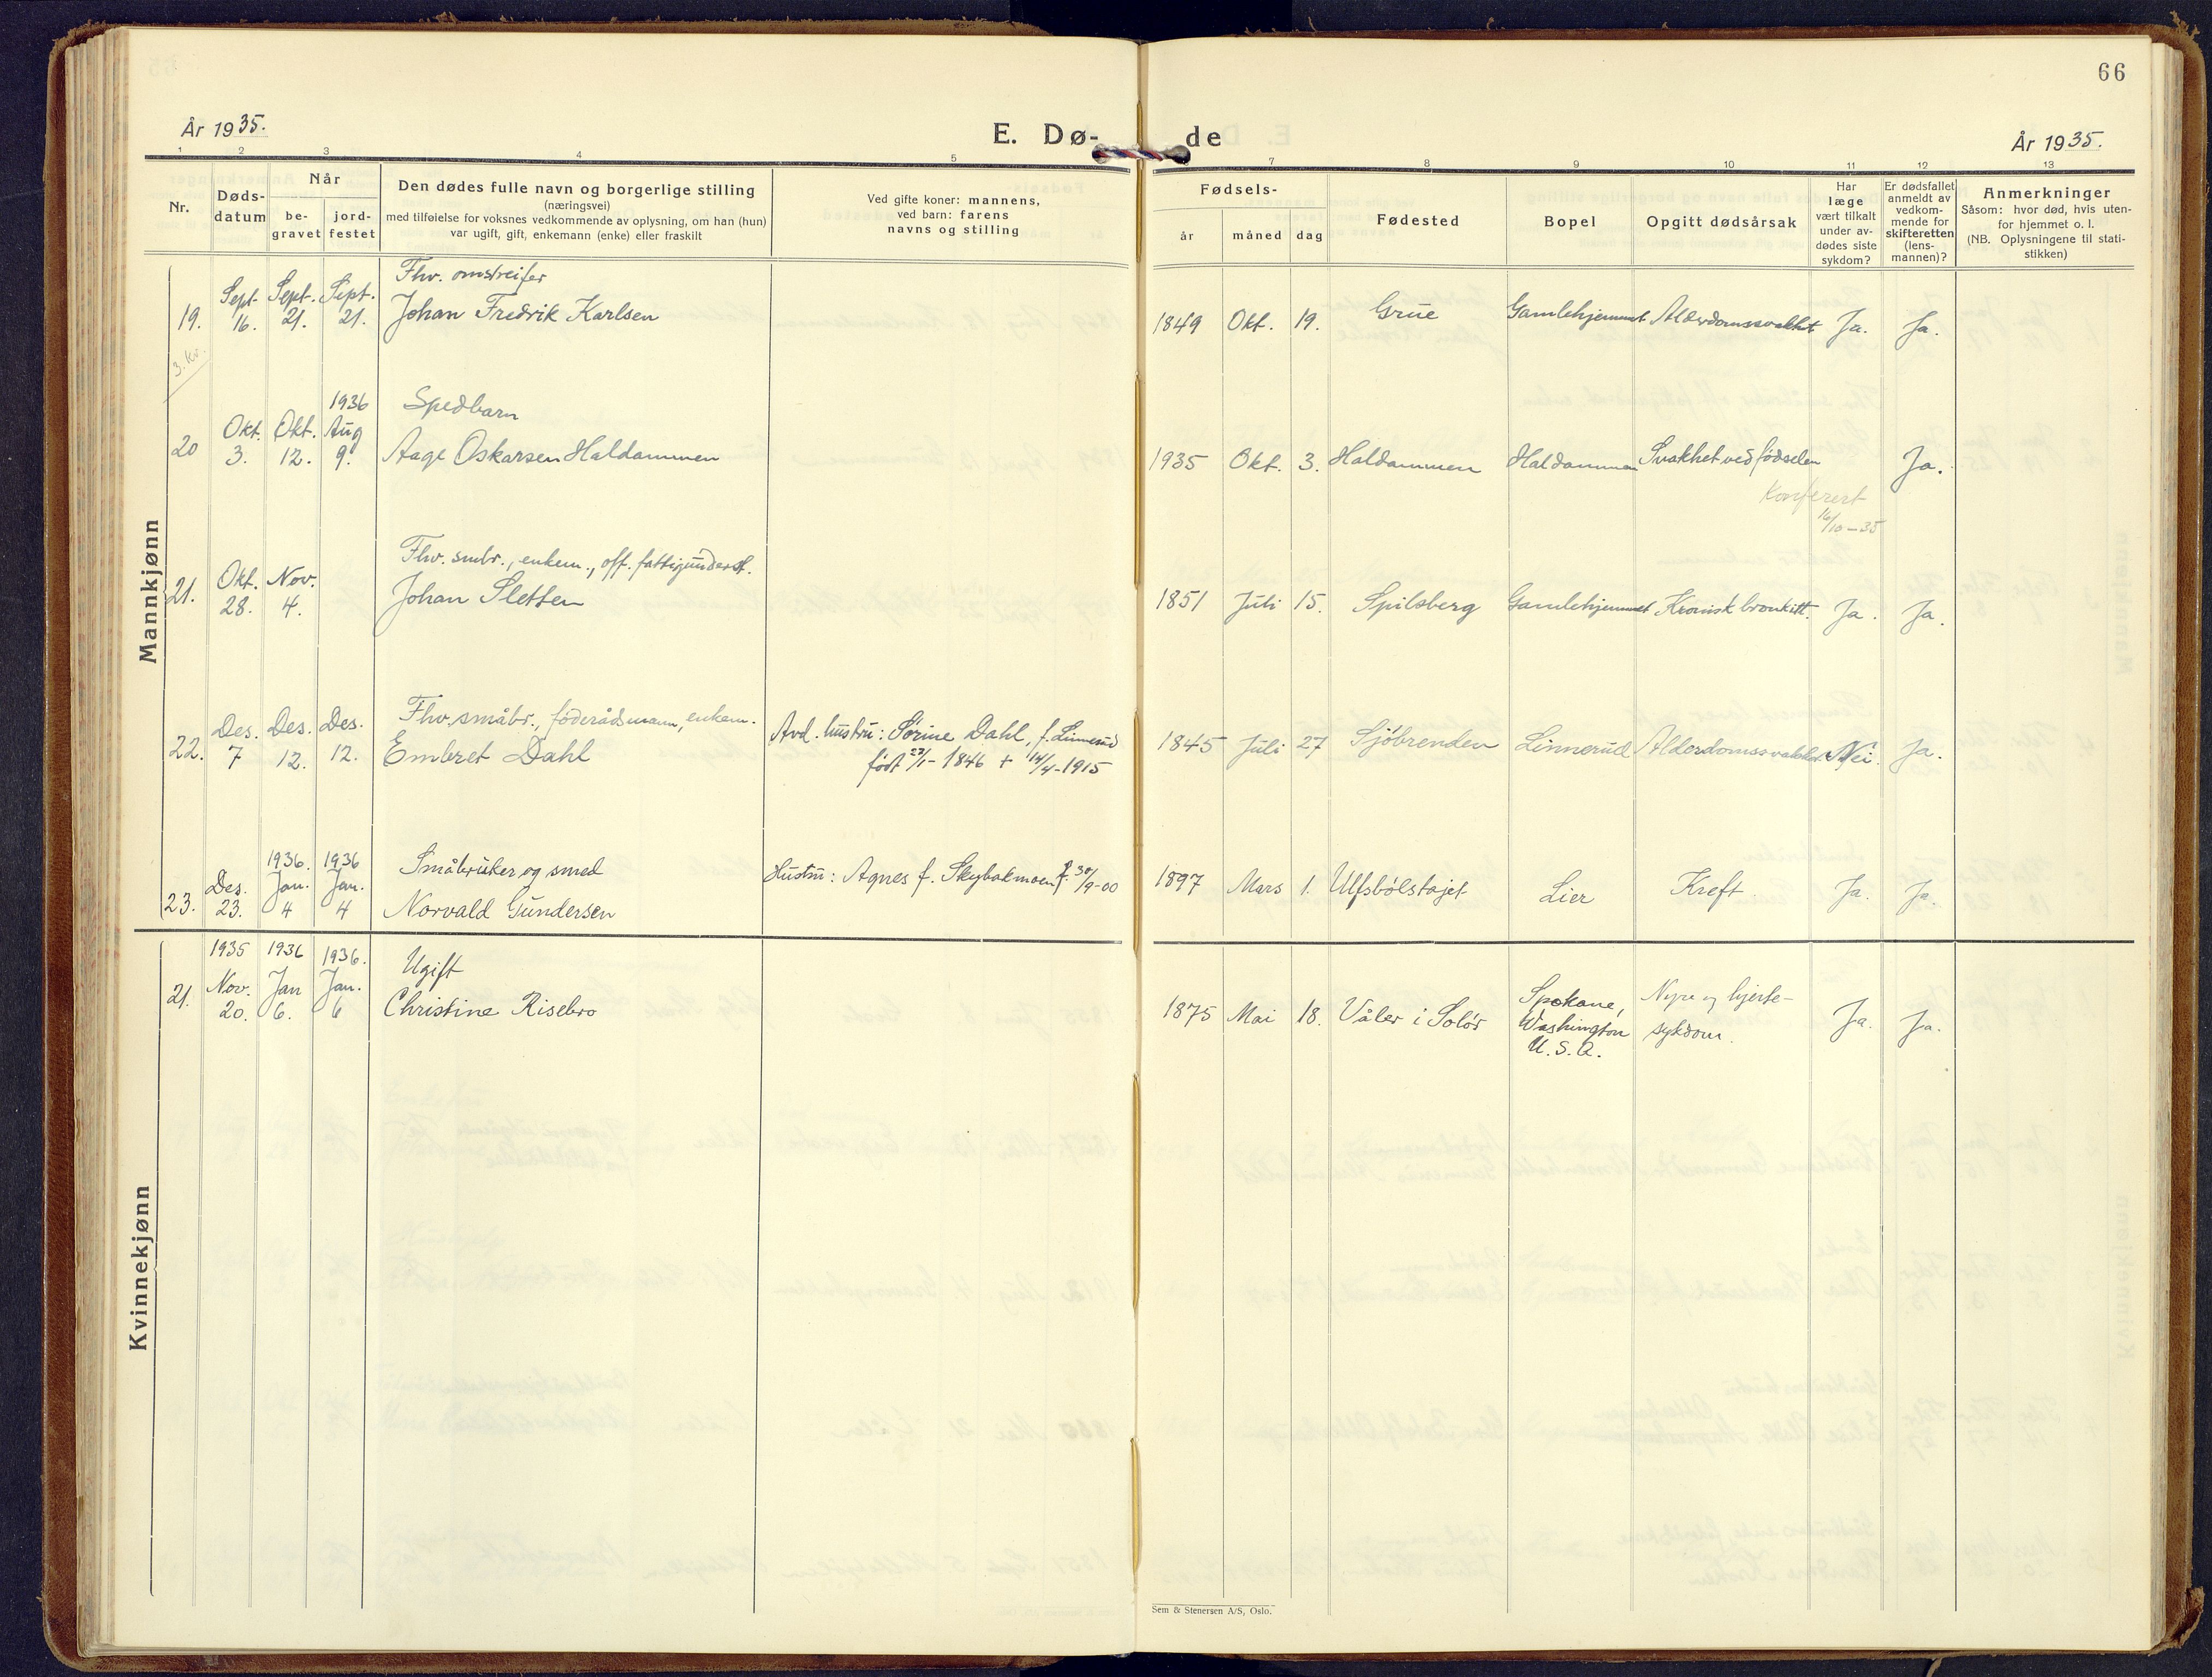 66
År 1935.
E. Dø-
de
År 1935.
1 2 3 4 5 7 8 9 10 11 12 13
Nr.
Døds-
datum
Når
be-
gravet
jord-
festet
Den dødes fulle navn og borgerlige stilling
(næringsvei)
med tilføielse for voksnes vedkommende av oplysning, om han (hun)
var ugift, gift, enkemann (enke) eller fraskilt
Ved gifte koner: mannens,
ved barn: farens
navns og stilling
Fødsels-
år
måned
dag
Fødested
Bopel
Opgitt dødsårsak
Har
læge
vært tilkalt
under av-
dødes siste
sykdom?
Er dødsfallet
anmeldt av
vedkom-
mende for
skifteretten
(lens-
mannen)?
Anmerkninger
Såsom: hvor død, hvis uten-
for hjemmet o. l.
(NB. Oplysningene til stati-
stikken)
Mannkjønn
Fhv. omstreifer
Sept. Sept. Sept.
19. 16. 21. 21. Johan Fredrik Karlsen 1849 Okt. 19. Grue Gamlehjemmet Alderdomssvakhet Ja. Ja.
3. Kv.
1936 Spedbarn
Okt. Okt. Aug
20 3. 12. 9. Aage Oskarsen Haldammen 1935 Okt. 3. Haldammen Haldammen Svakhet ved fødselen Ja.
Konferert
16/10-35
Fhv. smbr., enkem., off. fattigunderst.
Okt. Nov.
21. 28. 4. Johan Sletten 1851 Juli 15. Spilsberg Gamlehjemmet Kronisk bronkitt. Ja. Ja.
Fhv. småbr., føderådsmann, enkem.
Des. Des. Des.
22. 7 12. 12. Embret Dahl Avd. hustru: Sørine Dahl, f. Linnerud 1845 Juli 27 Sjøbrenden Linnerud Alderdomssvakhet. Nei. Ja.
født 23/1-1846 + 14/4-1915
1936. 1936 Småbruker og smed
Des. Jan. Jan.
23. 23. 4 4 Norvald Gundersen Hustru: Agnes f. Skybakmoen f. 30/9-00 1897 Mars 1. Ulfsbølstajet Lier Kreft Ja. Ja.
Kvinnekjønn
1935 1936 1936. Ugift
Nov. Jan Jan.
21. 20. 6. 6 Christine Risebro 1875 Mai 18. Våler i Solør Spokane, Nyre og hjerte- Ja. Ja.
Washington sykdom.
U.S.A.
Sem & Stenersen A/S, Oslo.